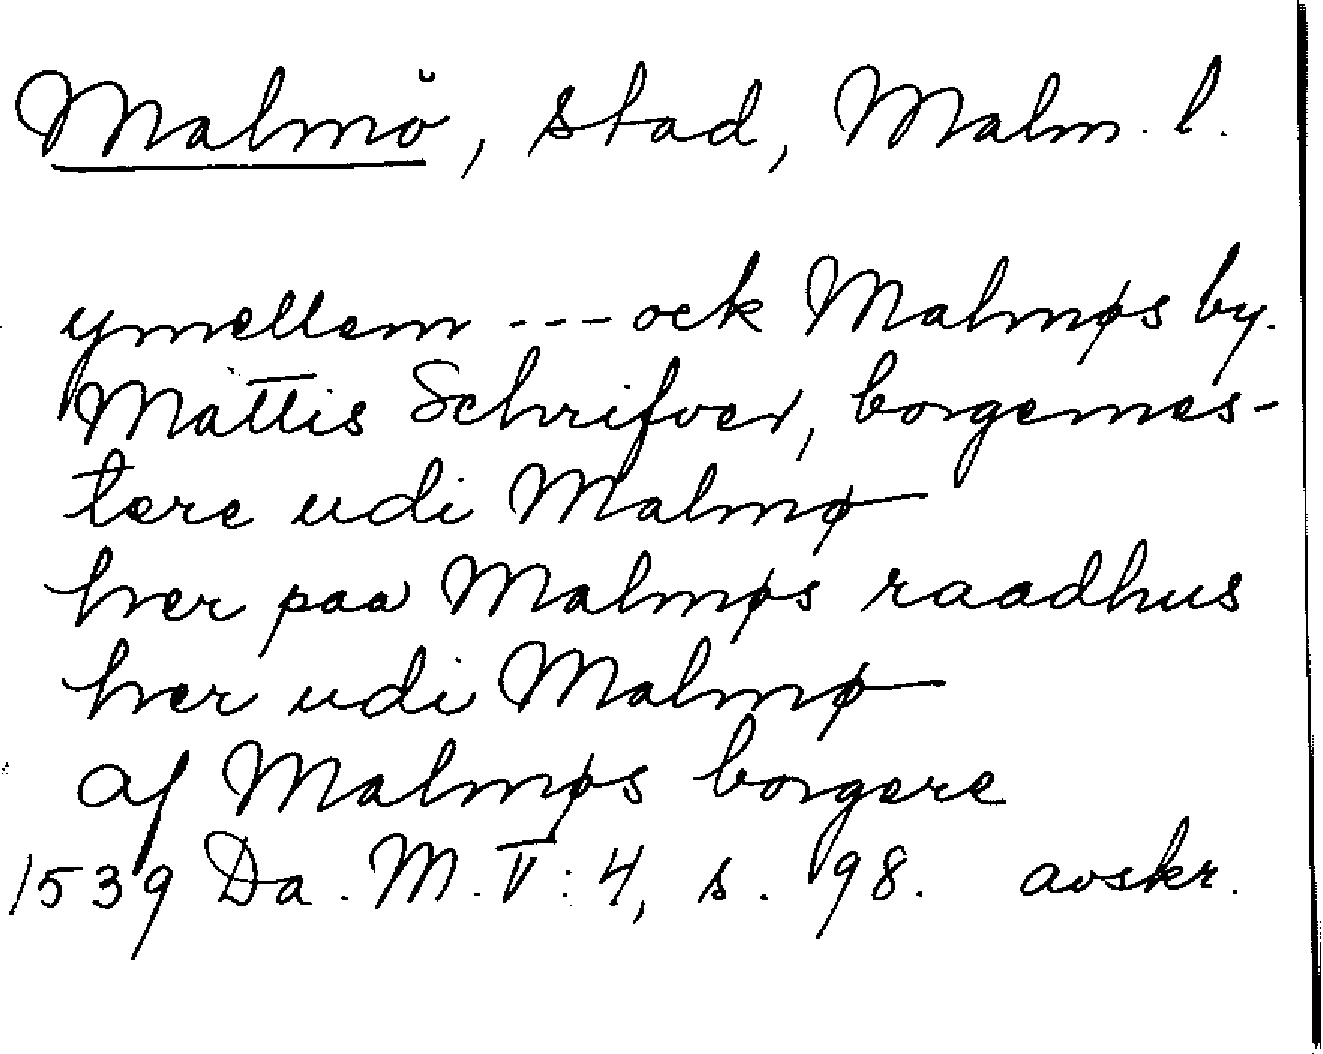 Malmö, stad, Malm. l.
ymellem --- ock Malmøs by.
Mattis Schrifver, borgemes-
tere udi Malmø
her paa Malmøs raadhus
her udi Malmø
af Malmøs borgere
1539 Da. M. V: 4, s. 98. avskr.